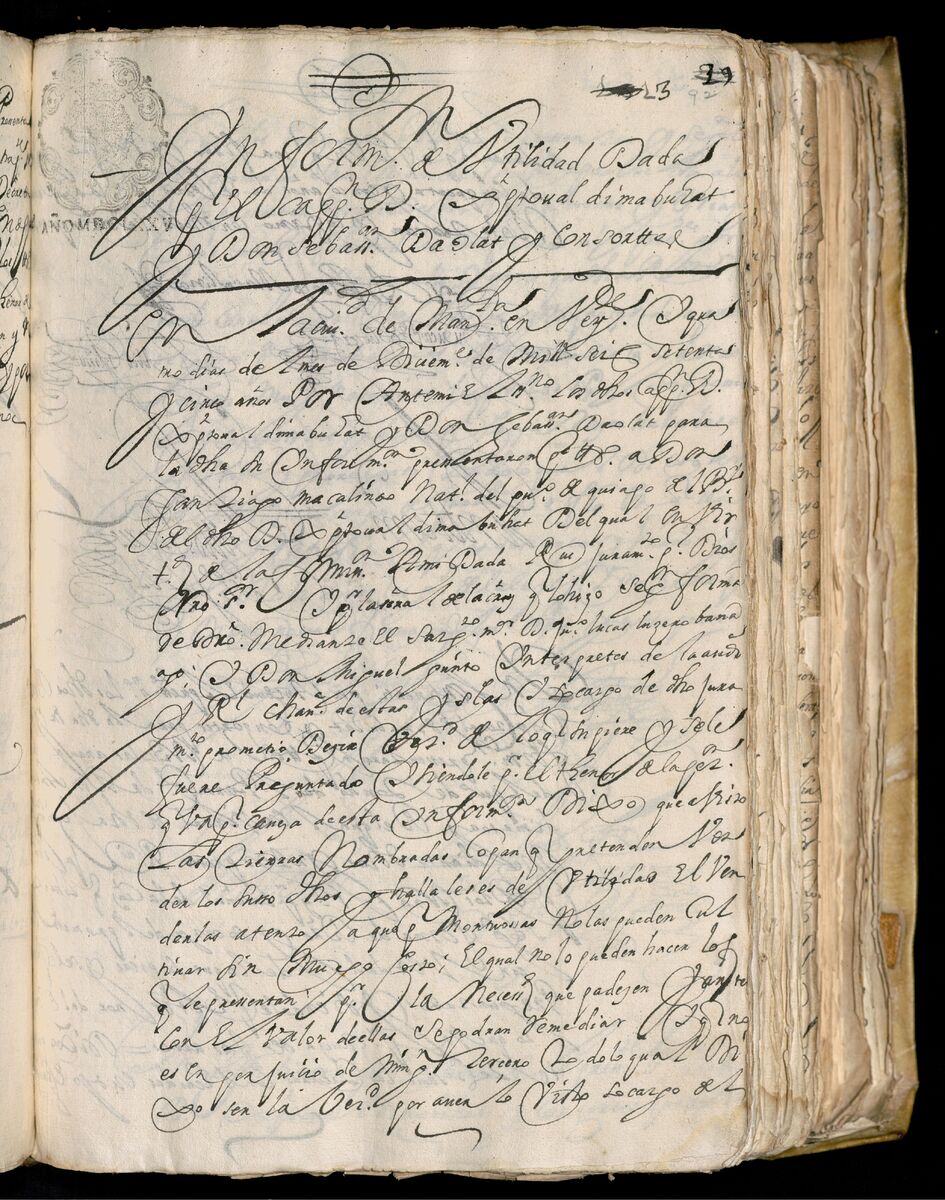 23 29
92
Inform.n de Utilidad Dada
p.r El Capp.n D. Xptoual dimabuhat
y Don sebass.an Daolat y Consorttes
En la ciu.d de Man.la en Veyte y qua
tro dias de l mes de Diciem.e de Mill seis setenta
y cinco años Por Antemi El ss.no los dhos capp.n D.
Xptoual dimabuhat y Don sebass.an Daolat para
la dha Inform.on presentaron p.r tt.o a Don
Santiago macalintto Nat.l del pu.o de quingo
del dho D. Xptoual dimabuhat Del qual En Vir
t.d de la Comiss.n Ami Dada Reciui Juram.to p.r Dios
Nro s.r y p.r la señal de la cruz q lo hizo seg.n forma
de dro. Mediante El sarg.to m.r D. Ju.o lucas luzero bama
y Don Miguel pinto Interpretes de la audi.a
y R.l chan.a de estas yslas so cargo de dho jura
m.to prometio Dezir Ver.d de lo q Supiere y se le
fuere Preguntado y siendole p.r El thenor de la pet.
q Va p.r caueza de esta Inform.on Dixo que
Las tierras Nombradas Copan q pretenden Ven
der los susso dhos halla les es de Utilidad El Ven
derlas atento a que p.r Montuosas No las pueden Cul
tiuar sin Mucho Costo; El qual no lo pueden hacer los
q le pressentan p.r la Necess.d que padezen
Con El Valor de ellas se podran Remediar y q no
es En perjuicio de Ning.n tercero todo lo qual Di
xo ser la Ver.d por auerlo Visto so cargo del